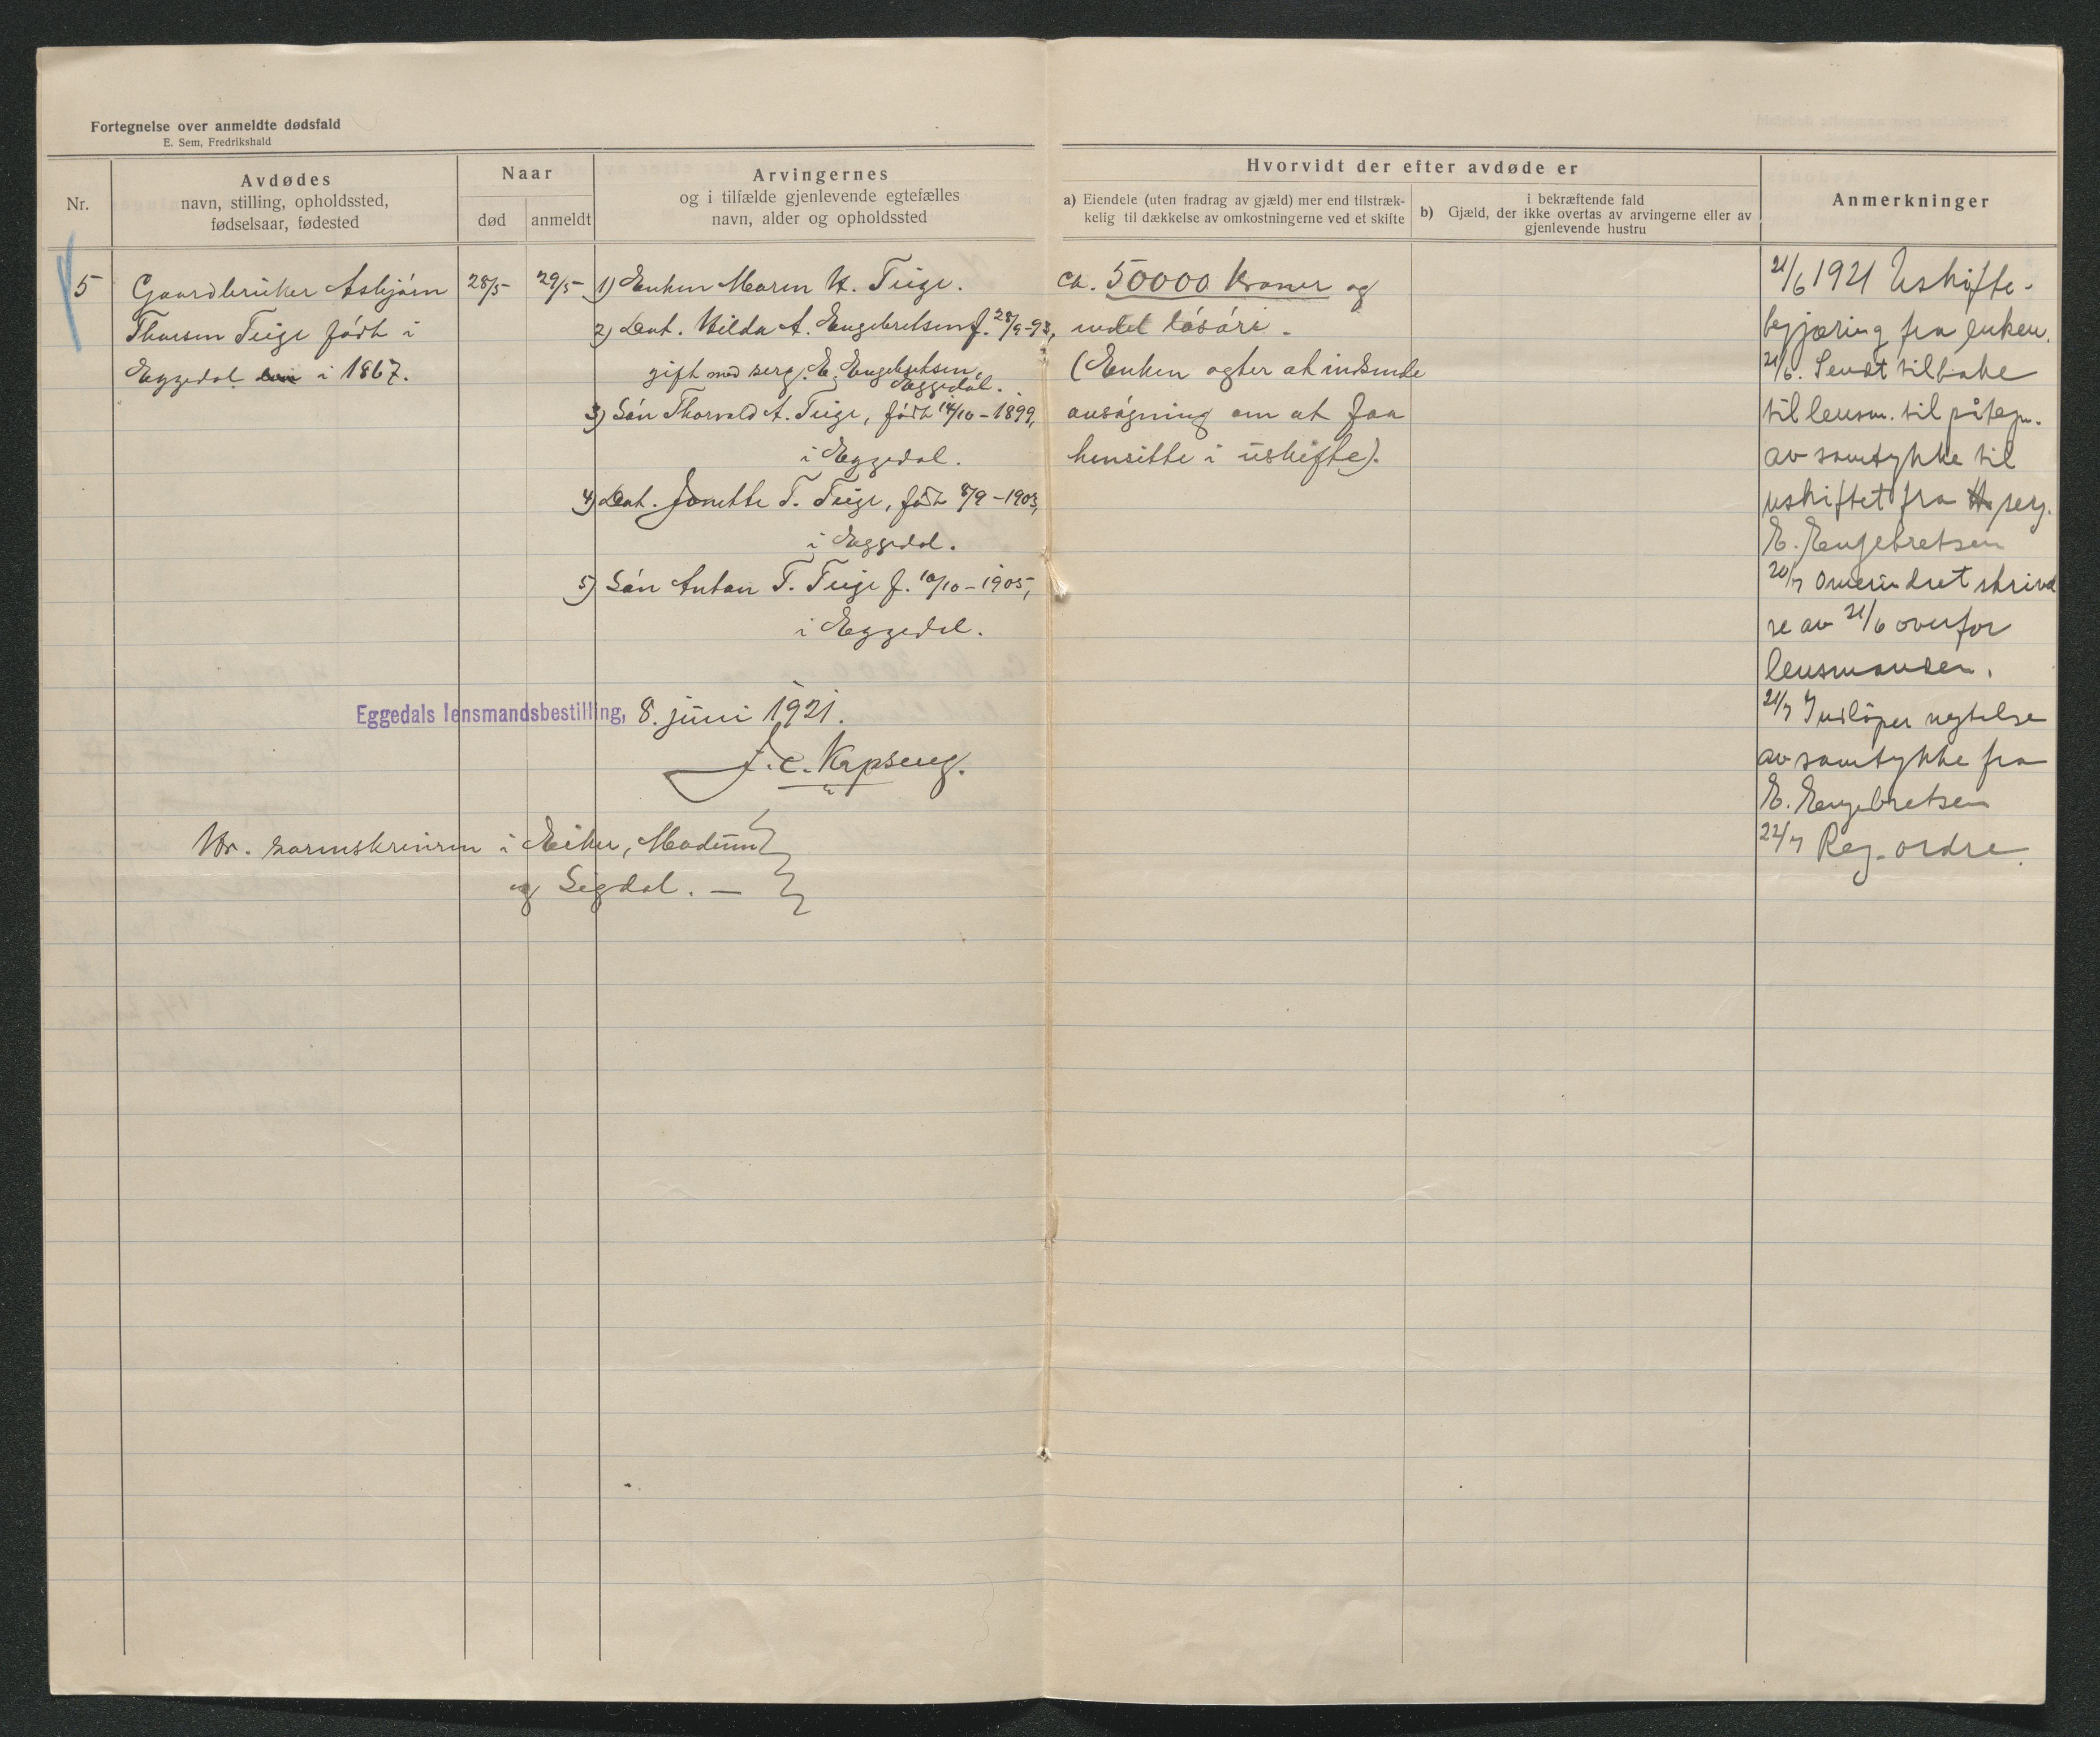 Fortegnelse over anmeldte dødsfald
E. Sem, Fredrikshald
Nr.
Avdødes
navn, stilling, opholdssted,
fødselsaar, fødested
Naar
død
anmeldt
Arvingernes
og i tilfælde gjenlevende egtefælles
navn, alder og opholdssted
Hvorvidt der efter avdøde er
a) Eiendele (uten fradrag av gjæld) mer end tilstræk-
kelig til dækkelse av omkostningerne ved et skifte
i bekræftende fald
b) Gjæld, der ikke overtas av arvingerne eller av
gjenlevende hustru
Anmerkninger
5
Gaardbruker Asbjørn
Thorsen Teige født i
Eggedal i 1867.
28/5
29/5
1) Enken Maren K. Teige.
2) Dat. Hilda A. Engebretsen f. 28/9-93,
gift med serg. E. Engebretsen,
Eggedal.
3) Søn Thorvald A. Teige, født 14/10-1899,
i Eggedal.
4) Dat. Jonette T. Teige, født 8/9-1903,
i Eggedal.
5) Søn Anton T. Teige f. 10/10-1905,
i Eggedal.
Eggedals lensmandsbestilling, 8. juni 1921.
J. C. Kopseng.
Hr. sorenskriveren i Eiker, Modum
og Sigdal. —
ca. 50000 kroner og
endel løsøre.
(Enken agter at indsende
ansøgning om at faa
hensitte i uskifte).
21/6 1921 Uskifte-
begjæring fra enken.
21/6. Sendt tilbake
til lensm. til påtegn.
av samtykke til
uskiftet fra serg.
E. Engebretsen
20/7 Omerindret skrivel
se av 21/6 overfor
lensmanden.
21/7 Indløper negtelse
av samtykke fra
E. Engebretsen
22/7 Reg. ordre.